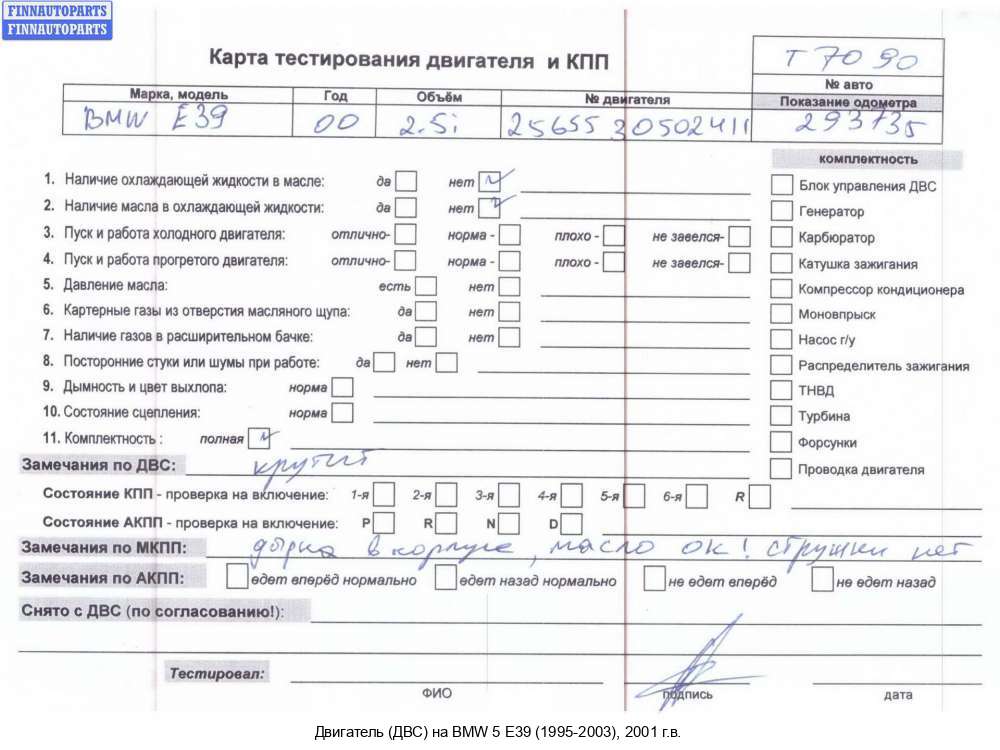 FINNAUTOPARTS
FINNAUTOPARTS
Карта тестирования двигателя и КПП
T 7090
№ авто
Марка, модель Год Объём № двигателя Показание одометра
BMW E39 00 2.5i 25655 30502411 293735
комплектность
1. Наличие охлаждающей жидкости в масле: да нет
Блок управления ДВС
2. Наличие масла в охлаждающей жидкости: да нет
Генератор
3. Пуск и работа холодного двигателя: отлично- норма - плохо - не завелся-
Карбюратор
4. Пуск и работа прогретого двигателя: отлично- норма - плохо - не завелся-
Катушка зажигания
5. Давление масла: есть нет
Компрессор кондиционера
6. Картерные газы из отверстия масляного щупа: да нет
Моновпрыск
7. Наличие газов в расширительном бачке: да нет
Насос г/у
8. Посторонние стуки или шумы при работе: да нет
Распределитель зажигания
9. Дымность и цвет выхлопа: норма
ТНВД
10. Состояние сцепления: норма
Турбина
11. Комплектность : полная
Форсунки
Замечания по ДВС: крутит
Проводка двигателя
Состояние КПП - проверка на включение: 1-я 2-я 3-я 4-я 5-я 6-я R
Состояние АКПП - проверка на включение: P R N D
Замечания по МКПП: дырка в корпусе, масло ок! стружки нет
Замечания по АКПП: едет вперёд нормально едет назад нормально не едет вперёд не едет назад
Снято с ДВС (по согласованию!):
Тестировал:
ФИО подпись дата
Двигатель (ДВС) на BMW 5 E39 (1995-2003), 2001 г.в.